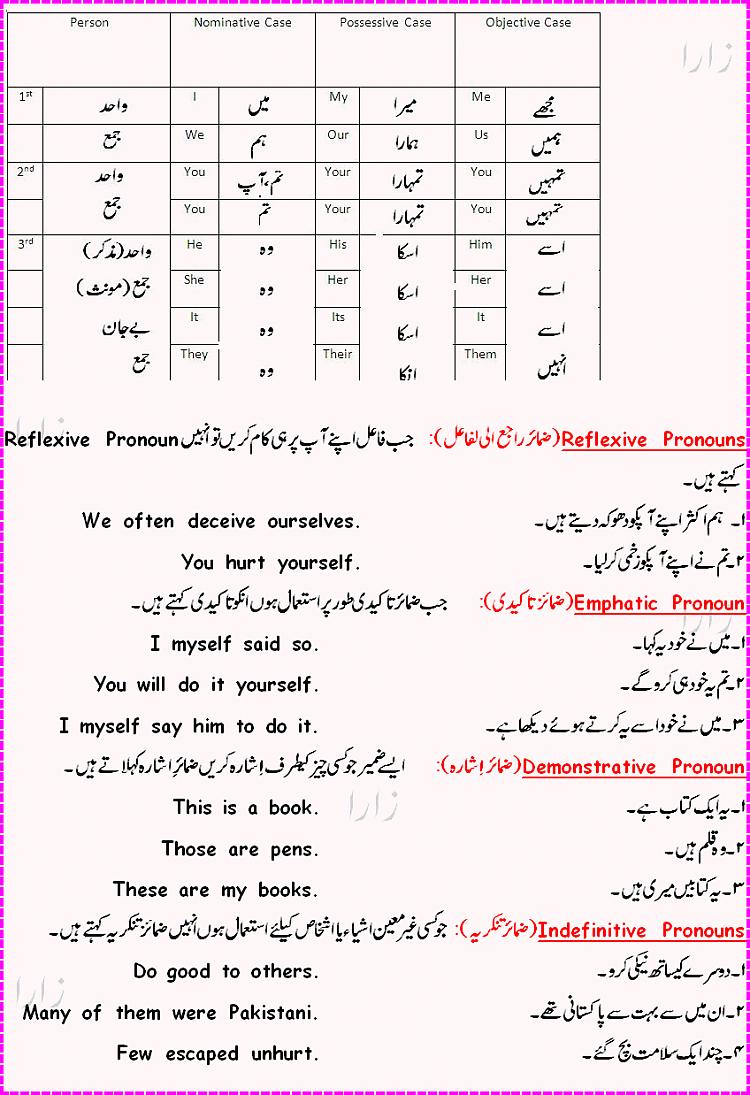 Person Nominative Case Possessive Case Objective Case
زارا
1st واحد I میں My میرا Me مجھے
جمع We ہم Our ہمارا Us ہمیں
2nd واحد You تم،آپ Your تمہارا You تمہیں
جمع You تم Your تمہارا You تمہیں
3rd واحد(مذکر) He وہ His اسکا Him اسے
جمع(مونث) She وہ Her اسکا Her اسے
بےجان It وہ Its اسکا It اسے
جمع They وہ Their انکا Them انہیں
زارا
Reflexive Pronouns(ضمائر راجع الی لفاعل): جب فاعل اپنے آپ پر ہی کام کریں تو انہیں Reflexive Pronoun
کہتے ہیں۔
۱۔ ہم اکثر اپنے آپکو دھوکہ دیتے ہیں۔ We often deceive ourselves.
۲۔تم نے اپنے آپکو زخمی کر لیا۔ You hurt yourself.
Emphatic Pronoun(ضمائر تاکیدی): جب ضمائر تاکیدی طور پر استعمال ہوں انکو تاکیدی کہتے ہیں۔
زارا
۱۔میں نے خود یہ کہا۔ I myself said so.
۲۔تم یہ خود ہی کرو گے۔ You will do it yourself.
۳۔میں نے خود اسے یہ کرتے ہوئے دیکھا ہے۔ I myself say him to do it.
Demonstrative Pronoun(ضمائر اِشارہ): ایسے ضمیر جو کسی چیز کیطرف اِشارہ کریں ضمائر اشارہ کہلاتے ہیں۔
۱۔یہ ایک کتاب ہے۔ This is a book.
زارا
۲۔وہ قلم ہیں۔ Those are pens.
۳۔یہ کتابیں میری ہیں۔ These are my books.
Indefinitive Pronouns(ضمائر تنکریہ): جو کسی غیر معین اشیاء یا اشخاص کیلئے استعمال ہوں انہیں ضمائر تنکریہ کہتے ہیں۔
۱۔دوسرے کیساتھ نیکی کرو۔ Do good to others.
زارا
۲۔ان میں سے بہت سے پاکستانی تھے۔ Many of them were Pakistani.
۴۔چند ایک سلامت بچ گئے۔ Few escaped unhurt.